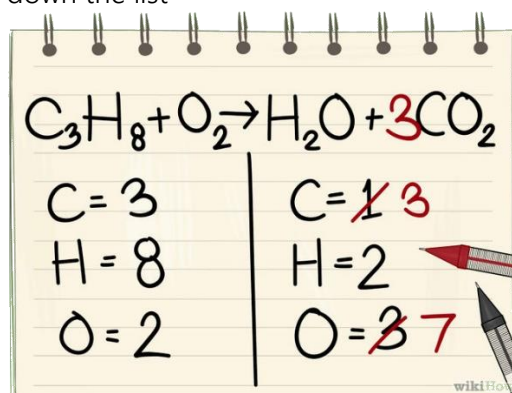 down the list
C₃H₈+O₂→H₂O+3CO₂
C=3
C=1 3
H=8
H=2
O=2
O=3 7
wikiHow